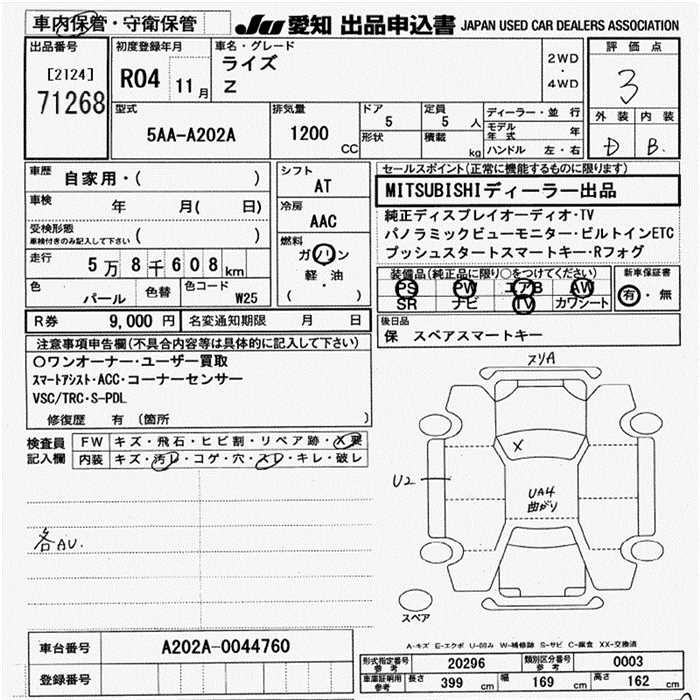 車内保管・守衛保管
JU 愛知 出品申込書 JAPAN USED CAR DEALERS ASSOCIATION
出品番号
[2124]
71268
初度登録年月
R04 11月
車名・グレード
ライズ
Z
2WD
・
4WD
評価点
3
外装 内装
D B.
型式
5AA-A202A
排気量
1200 CC
ドア
5
形状
定員
5 人
積載
kg
ディーラー・並行
モデル年式 年
ハンドル 左・右
車歴 自家用・( )
車検 年 月( 日)
受検形態
車検付きのみ記入して下さい ( )
走行 5万8千608km
色 パール
色替
色コード W25
シフト
AT
冷房
AAC
燃料
ガソリン
軽・油
( ・ )
セールスポイント(正常に機能するものに限ります)
MITSUBISHIディーラー出品
純正ディスプレイオーディオ・TV
パノラミックビューモニター・ビルトインETC
プッシュスタートスマートキー・Rフォグ
装備品(純正品に限り○をつけてください)
PS PW エアB AW
SR ナビ TV カワシート
新車保証書
有・無
R券 9,000 円
名変通知期限 月 日
後日品
保 スペアスマートキー
注意事項申告欄(不具合内容等は具体的に記入して下さい)
○ワンオーナー・ユーザー買取
スマートアシスト・ACC・コーナーセンサー
VSC/TRC・S-PDL
修復歴 有 (箇所 )
検査員
記入欄
FW キズ・飛石・ヒビ割・リペア跡・X要
内装 キズ・汚レ・コゲ・穴・スレ・キレ・破レ
各AU.
スリA
X
U2
UA4
曲がり
スペア
A-キズ E-エクボ U-凹み W-補修跡 S-サビ C-腐食 XX-交換済
車台番号 A202A-0044760
登録番号
形式指定番号
参考
20296
類別区分番号
参考
0003
車庫証明用
参考
長さ 399 cm
幅 169 cm
高さ 162 cm